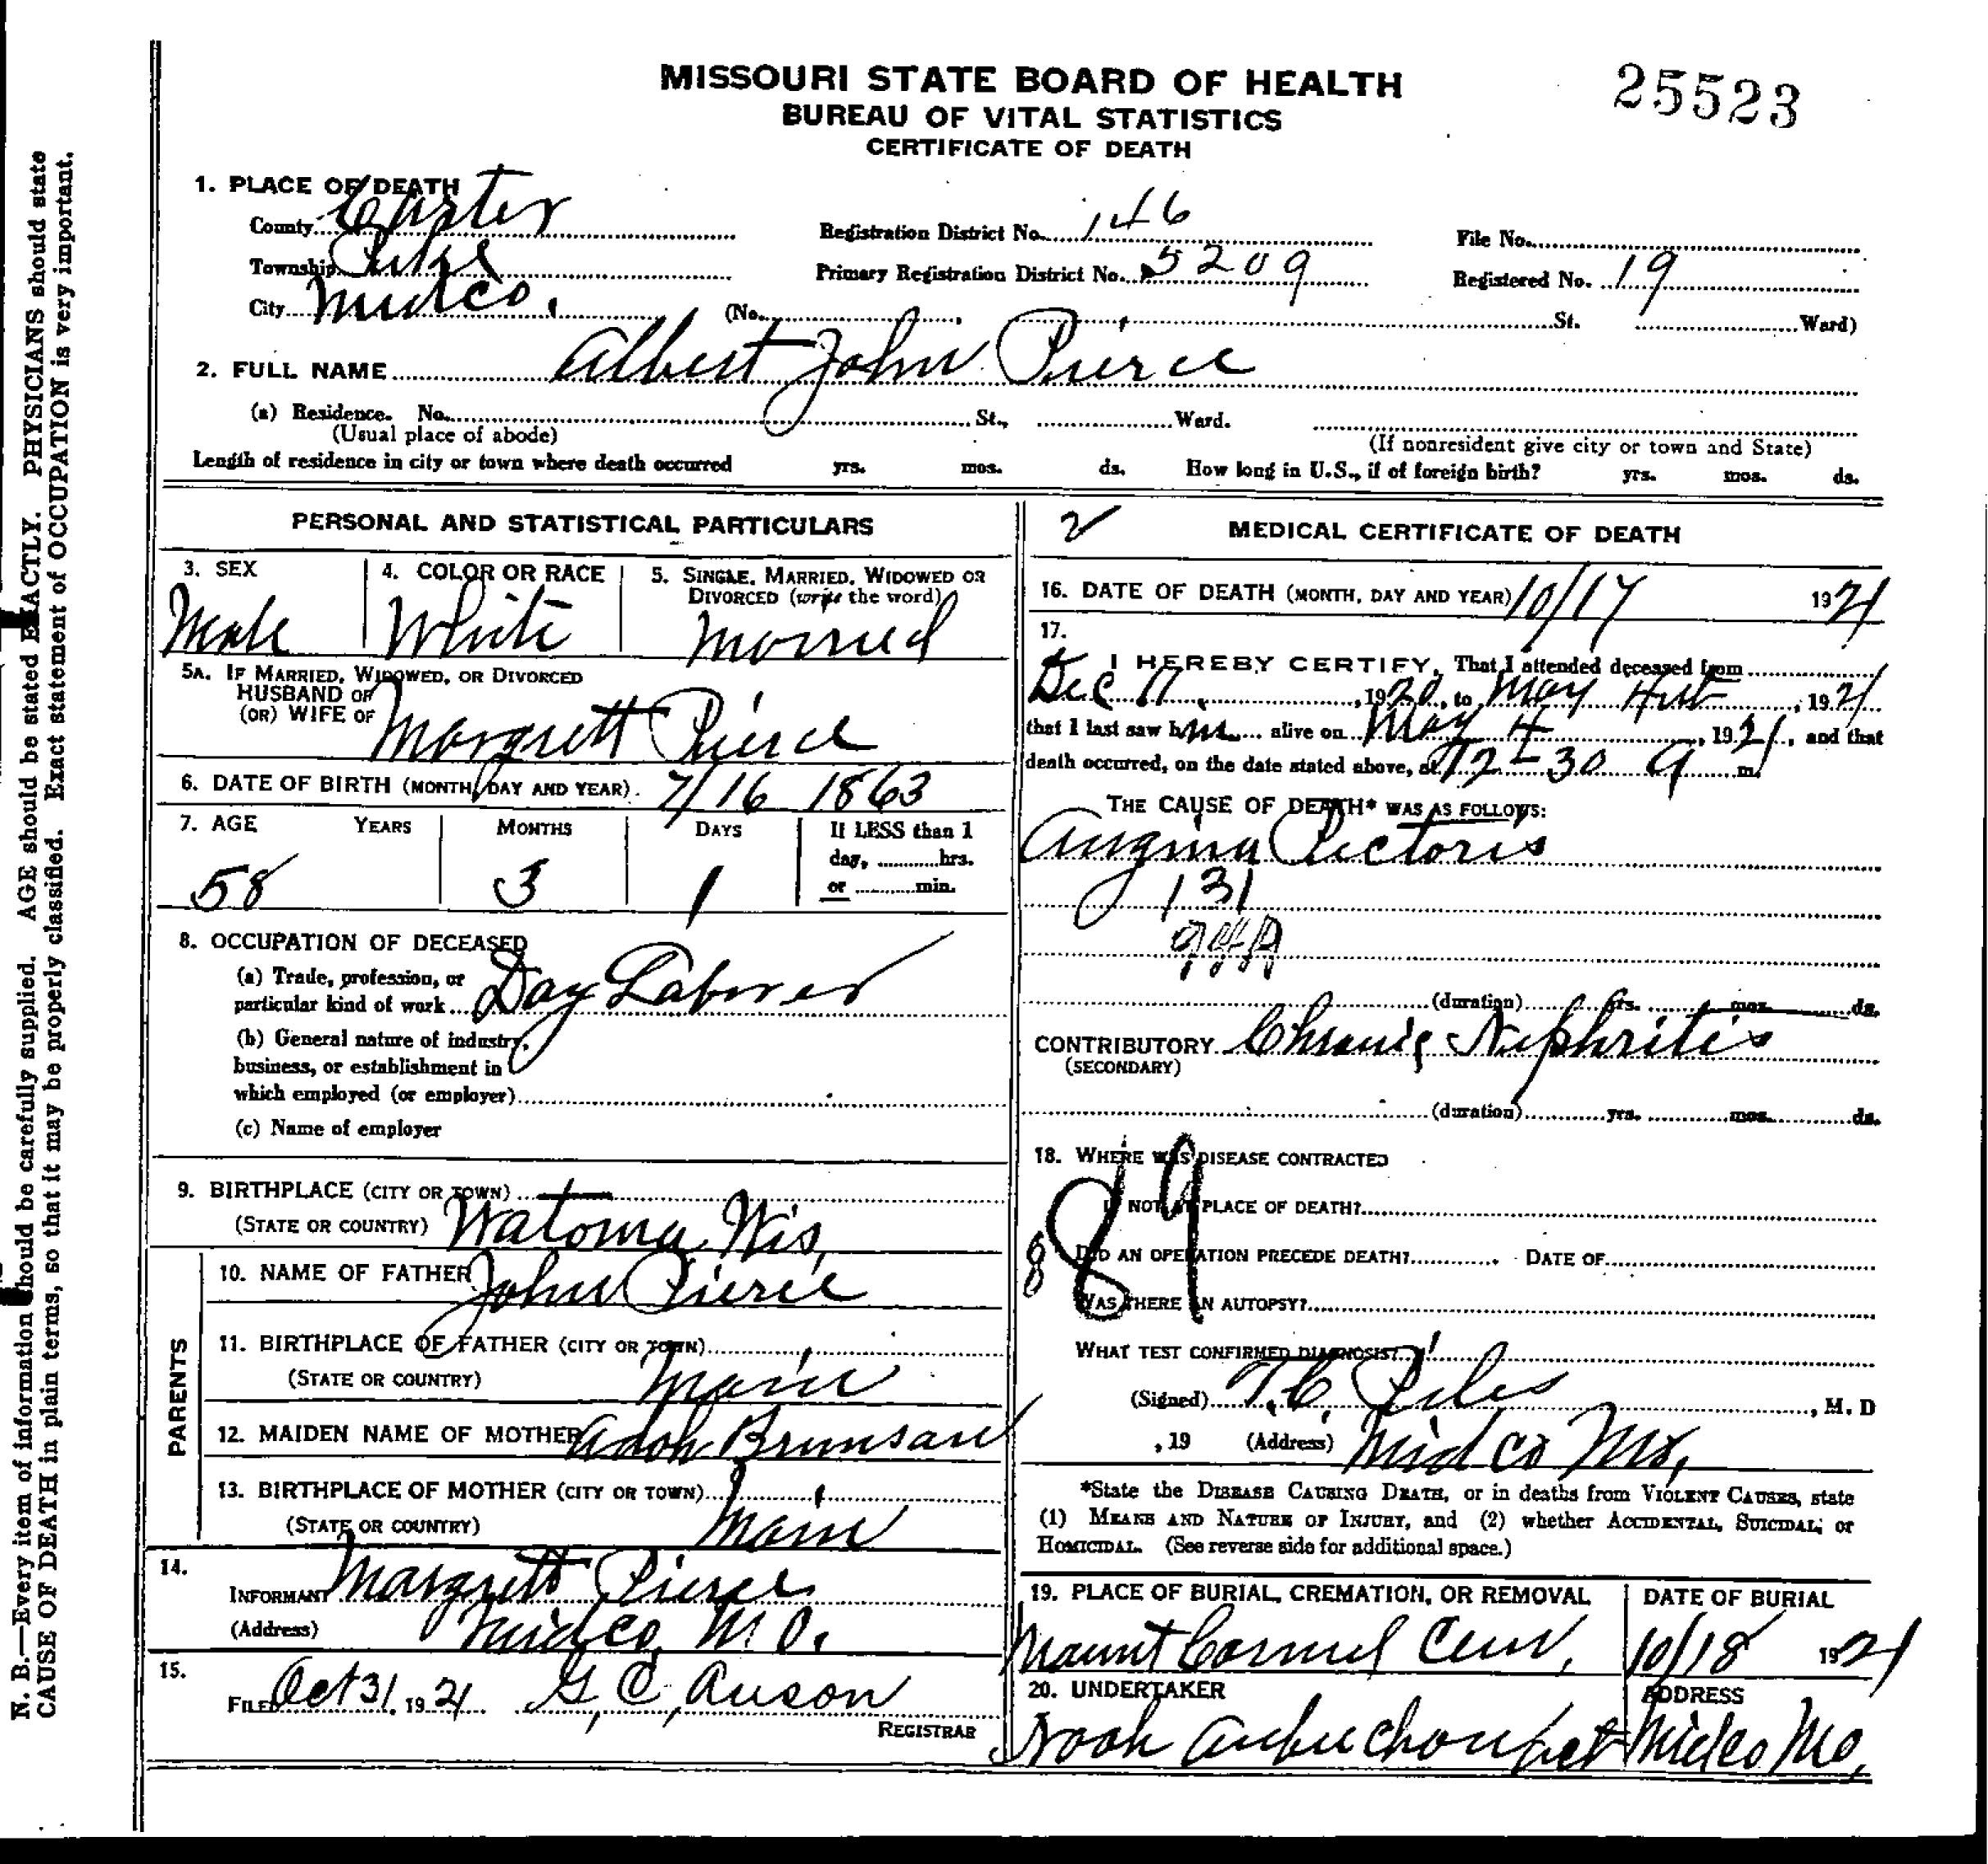 MISSOURI STATE BOARD OF HEALTH
BUREAU OF VITAL STATISTICS
CERTIFICATE OF DEATH
25523
1. PLACE OF DEATH
County Carter Registration District No. 146 File No.
Township Pike Primary Registration District No. 5209 Registered No. 19
City Midco. (No. , St. Ward)
2. FULL NAME Albert John Pierce
(a) Residence. No. St., Ward.
(Usual place of abode) (If nonresident give city or town and State)
Length of residence in city or town where death occurred yrs. mos. ds. How long in U.S., if of foreign birth? yrs. mos. ds.
PERSONAL AND STATISTICAL PARTICULARS
3. SEX 4. COLOR OR RACE 5. SINGLE, MARRIED, WIDOWED OR
DIVORCED (write the word)
Male White Married
5A. IF MARRIED, WIDOWED, OR DIVORCED
HUSBAND OF
(OR) WIFE OF Margrett Pierce
6. DATE OF BIRTH (MONTH, DAY AND YEAR). 7/16 1863
7. AGE YEARS MONTHS DAYS If LESS than 1
day, hrs.
or min.
58 3 1
8. OCCUPATION OF DECEASED
(a) Trade, profession, or
particular kind of work Day Laborer
(b) General nature of industry,
business, or establishment in
which employed (or employer)
(c) Name of employer
9. BIRTHPLACE (CITY OR TOWN)
(STATE OR COUNTRY) Watoma Wis,
PARENTS
10. NAME OF FATHER John Pierce
11. BIRTHPLACE OF FATHER (CITY OR TOWN)
(STATE OR COUNTRY) Main
12. MAIDEN NAME OF MOTHER Adoh Brunsan
13. BIRTHPLACE OF MOTHER (CITY OR TOWN)
(STATE OR COUNTRY) Main
14.
INFORMANT Margrett Pierce
(Address) Midco, MO.
15.
FILED Oct 31, 1921 G, C, Auson
REGISTRAR
2 MEDICAL CERTIFICATE OF DEATH
16. DATE OF DEATH (MONTH, DAY AND YEAR) 10/17 1921
17.
I HEREBY CERTIFY, That I attended deceased from
Dec 17, 1920, to May 4, 1921
that I last saw him alive on May 4, 1921, and that
death occurred, on the date stated above, at 12-30 a m.
THE CAUSE OF DEATH* WAS AS FOLLOWS:
Angina Pectoris
131
94A
(duration) yrs. mos. ds.
CONTRIBUTORY Chronic Nephritis
(SECONDARY)
(duration) yrs. mos. ds.
18. WHERE WAS DISEASE CONTRACTED
IF NOT AT PLACE OF DEATH?
89
DID AN OPERATION PRECEDE DEATH? DATE OF
WAS THERE AN AUTOPSY?
WHAT TEST CONFIRMED DIAGNOSIS?
(Signed) T.C. Piles, M. D
, 19 (Address) Midco Mo,
*State the DISEASE CAUSING DEATH, or in deaths from VIOLENT CAUSES, state
(1) MEANS AND NATURE OF INJURY, and (2) whether ACCIDENTAL, SUICIDAL, or
HOMICIDAL. (See reverse side for additional space.)
19. PLACE OF BURIAL, CREMATION, OR REMOVAL DATE OF BURIAL
Maunt Carmel Cem, 10/18 1921
20. UNDERTAKER ADDRESS
Noah Midco Mo,
N. B.—Every item of information should be carefully supplied. AGE should be stated EXACTLY. PHYSICIANS should state
CAUSE OF DEATH in plain terms, so that it may be properly classified. Exact statement of OCCUPATION is very important.